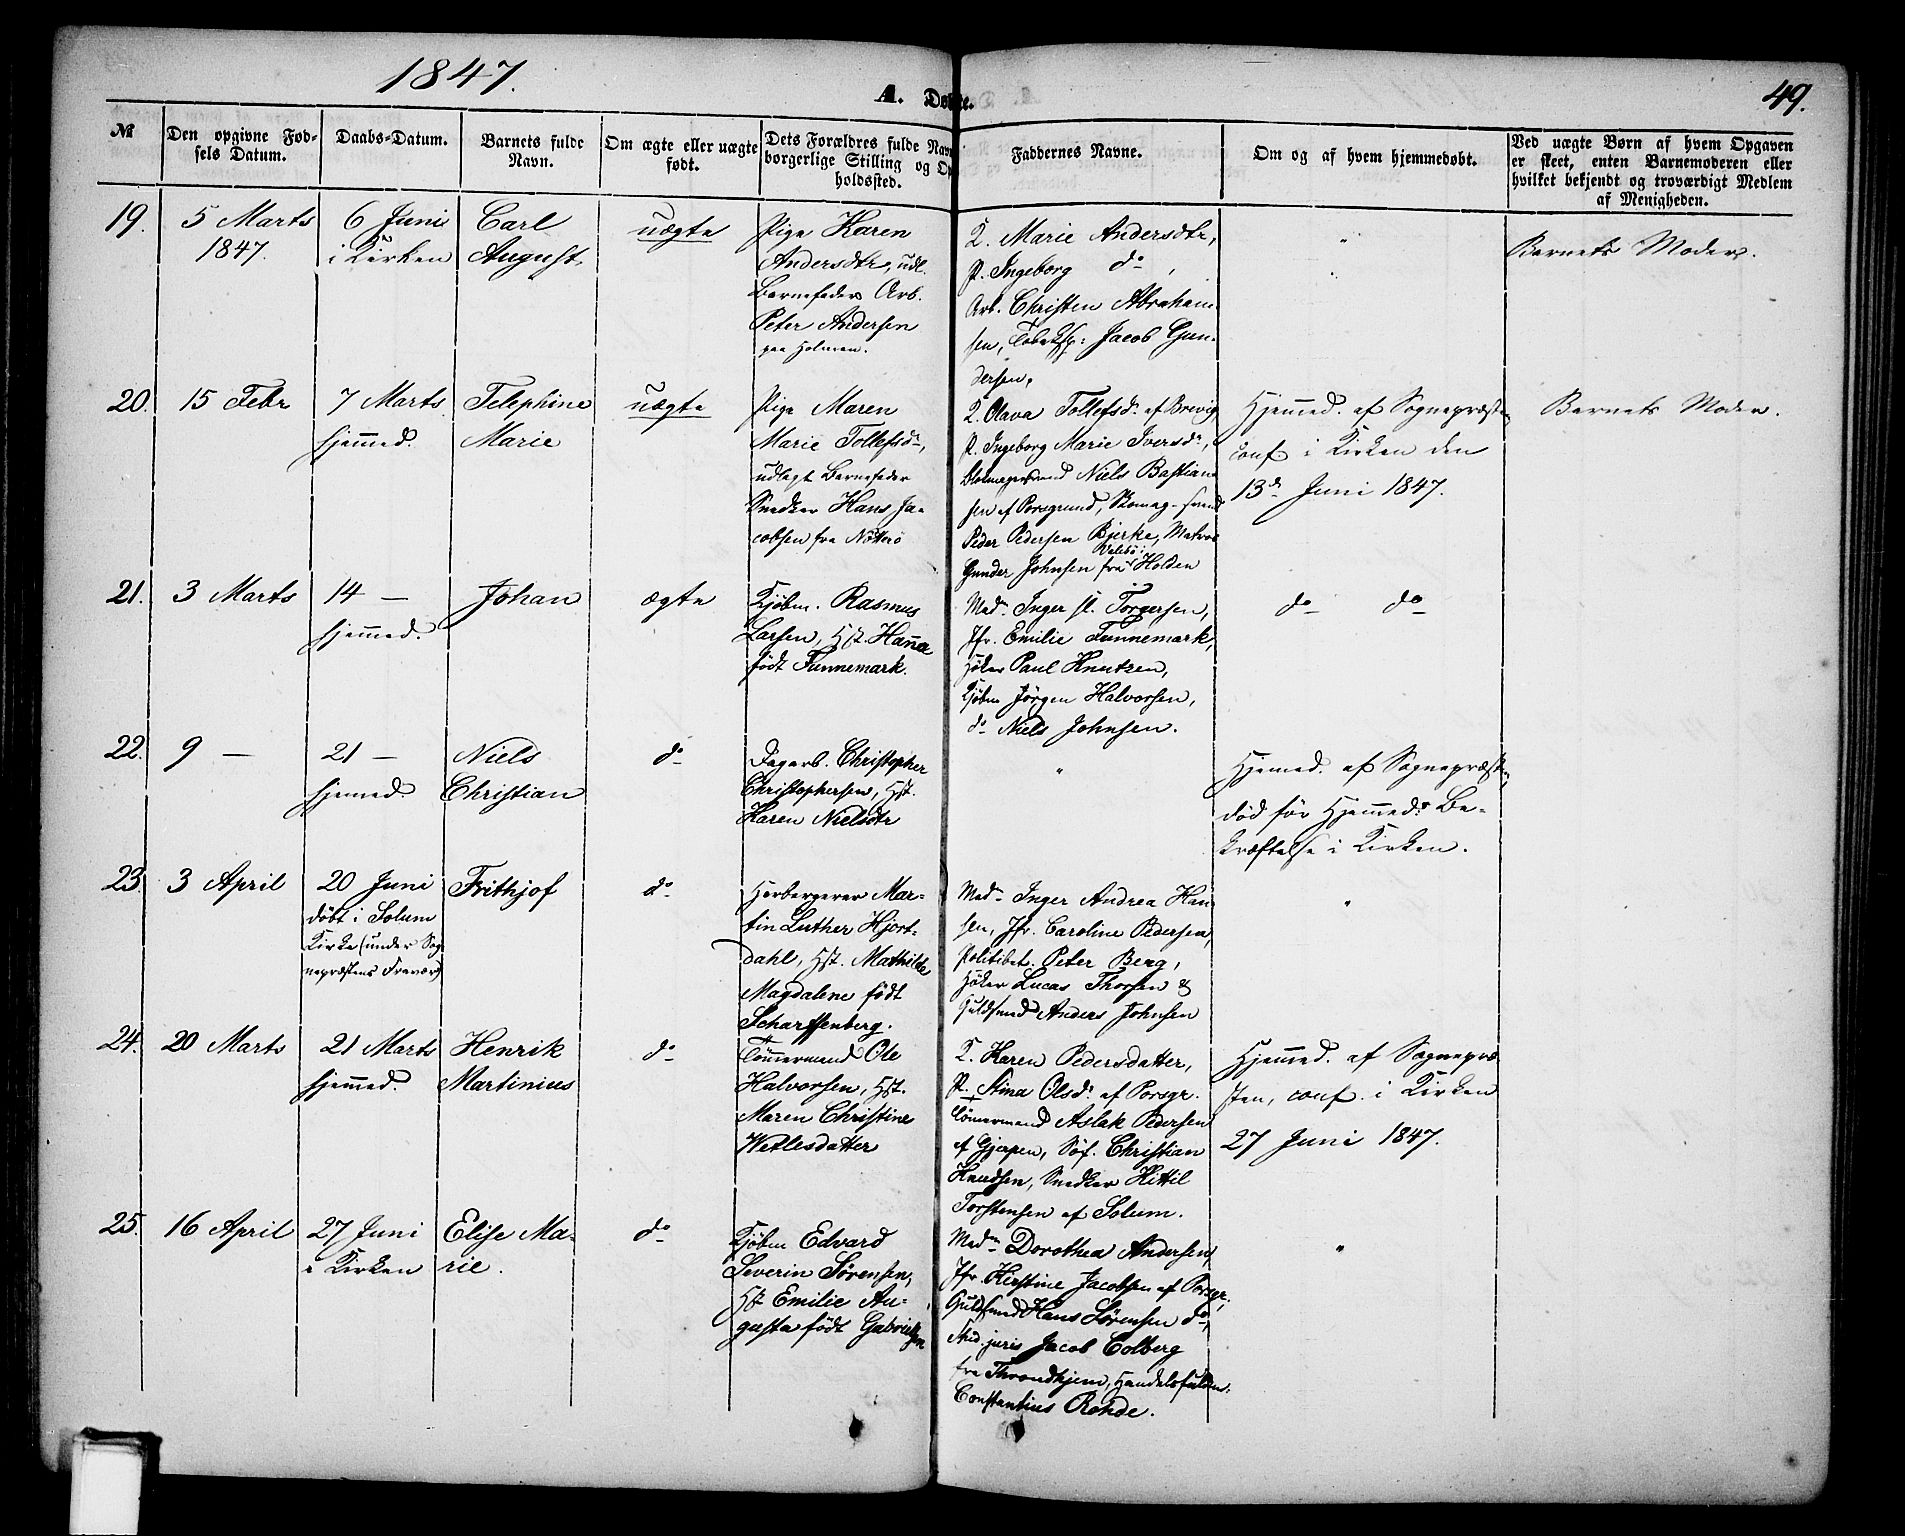 1847.
A. Døbte.
49.
No
Den opgivne Fødsels Datum.
Daabs-Datum.
Barnets fulde Navn.
Om ægte eller uægte født.
Dets Forældres fulde Navn borgerlige Stilling og Opholdssted.
Faddernes Navne.
Om og af hvem hjemmedøbt.
Ved uægte Børn af hvem Opgaven er skeet, enten Barnemoderen eller hvilket bekjendt og troværdigt Medlem af Menigheden.
19.
5 Marts
1847.
6 Juni
i Kirken
Carl
August
uægte
Pige Karen
Andersdtr, udl.
Barnefader Arb.
Peter Andersen
paa Holmen.
K. Marie Andersdtr,
P. Ingeborg do,
Arb. Christen Abraham-
sen, Jacob Gun-
dersen.
"
Barnets Moder.
20.
15 Febr
7 Marts
hjemmed.
Telephine
Marie
uægte
Pige Maren
Marie Tollefsdr,
udlagt Barnefader
Snedker Hans Ja-
cobsen fra Nøtterø
K. Olava Tollefsdr af Brevig
P. Ingeborg Marie Iversdr,
Niels Bastian-
sen af Porsgrund, Skomag-svend
Peder Pedersen Bjerke, Matros
Gunder Johnsen fra Valebø i Holden
Hjemmed. af Sognepræsten,
conf. i Kirken den
13de Juni 1847.
Barnets Moder.
21.
3 Marts
14 —
hjemmed.
Johan
ægte
Kjøbm. Rasmus
Larsen, Hst. Hanna
født Funnemark.
Mad. Inger sl. Torgersen,
Jfr. Emilie Funnemark,
Høker Paul Knutzen,
Kjøbm Jørgen Halvorsen,
do Niels Johnsen.
do do
22.
9 —
21 —
hjemmed.
Niels
Christian
do
Dagarb. Christopher
Christophersen, Hst.
Karen Nielsdtr
"
Hjemmed. af Sognepræsten,
død før Hjemmed. Be-
kræftelse i Kirken.
23.
3 April
20 Juni
døbt i Solum
Kirke (under Sog-
nepræstens Fravær)
Frithjof
do
Herbergerer Mar-
tin Luther Hjort-
dahl, Hst. Mathilde
Magdalene født
Scharffenberg.
Mad. Inger Andrea Han-
sen, Jfr. Caroline Pedersen,
Politibet. Peter Berg,
Høker Lucas Thorsen &
Guldsmed Anders Johnsen
"
24.
20 Marts
21 Marts
hjemmed.
Henrik
Martinius
do
Tømmermand Ole
Halvorsen, Hst.
Maren Christine
Wetlesdatter
K. Karen Pedersdatter,
P. Stina Olsdr af Porsgr.
Tømmermand Aslak Pedersen
af Gjerpen, Søf. Christian
Knudsen, Snedker Kittil
Torstensen af Solum.
Hjemmed. af Sognepræ-
sten, conf. i Kirken
27 Juni 1847.
25.
16 April
27 Juni
i Kirken
Elise Ma-
rie.
do
Kjøbm Edvard
Severin Sørensen,
Hst Emilie Au-
gusta født Gabrielsen
Mad. Dorothea Andersen,
Jfr. Kirstine Jacobsen af Porsgr.,
Guldsmed Hans Sørensen do,
Stud. juris Jacob Colberg
fra Throndhjem, Handelsfuldm.
Constantius Rohde.
"